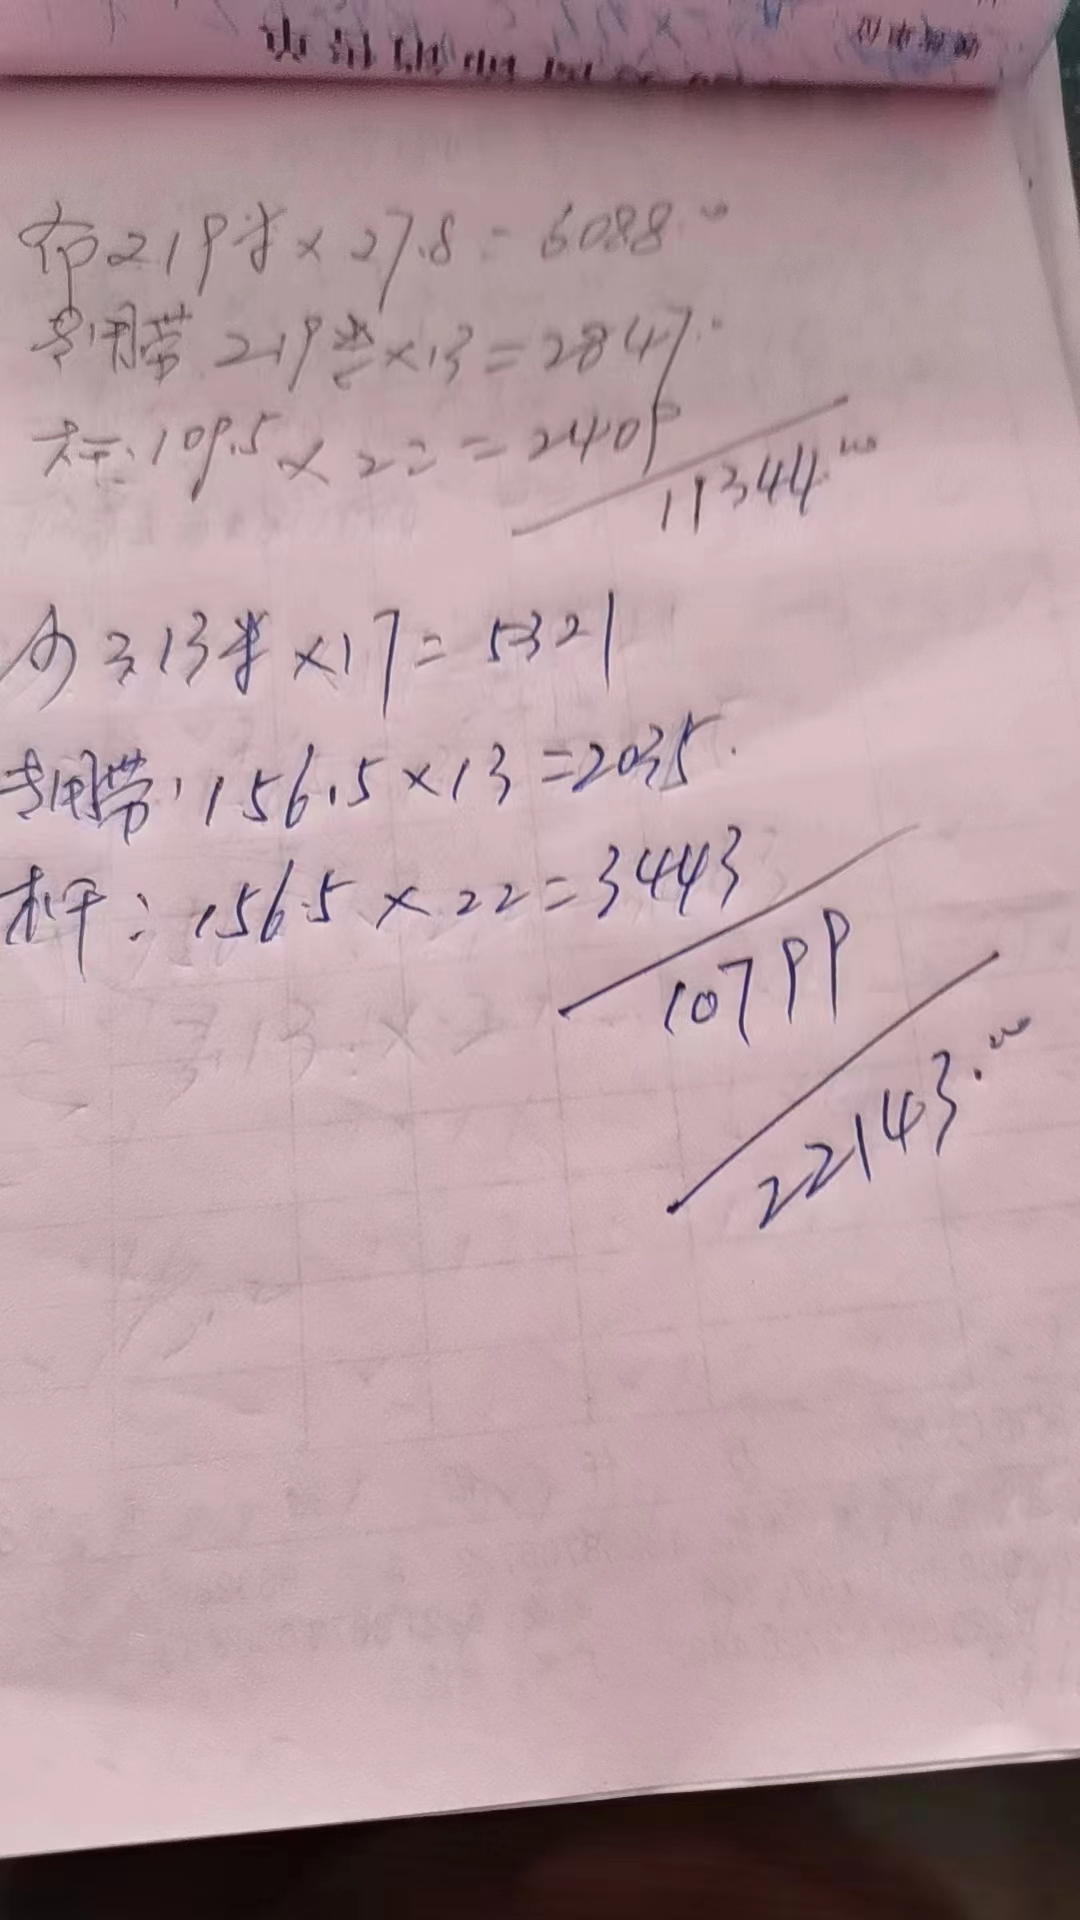 布219米×27.8=6088.00
专用带 219米×13=2847.
杆:109.5×22=2409
11344.00
纱313米×17=5321
专用带:156.5×13=2035.
杆:156.5×22=3443
10799
22143.00